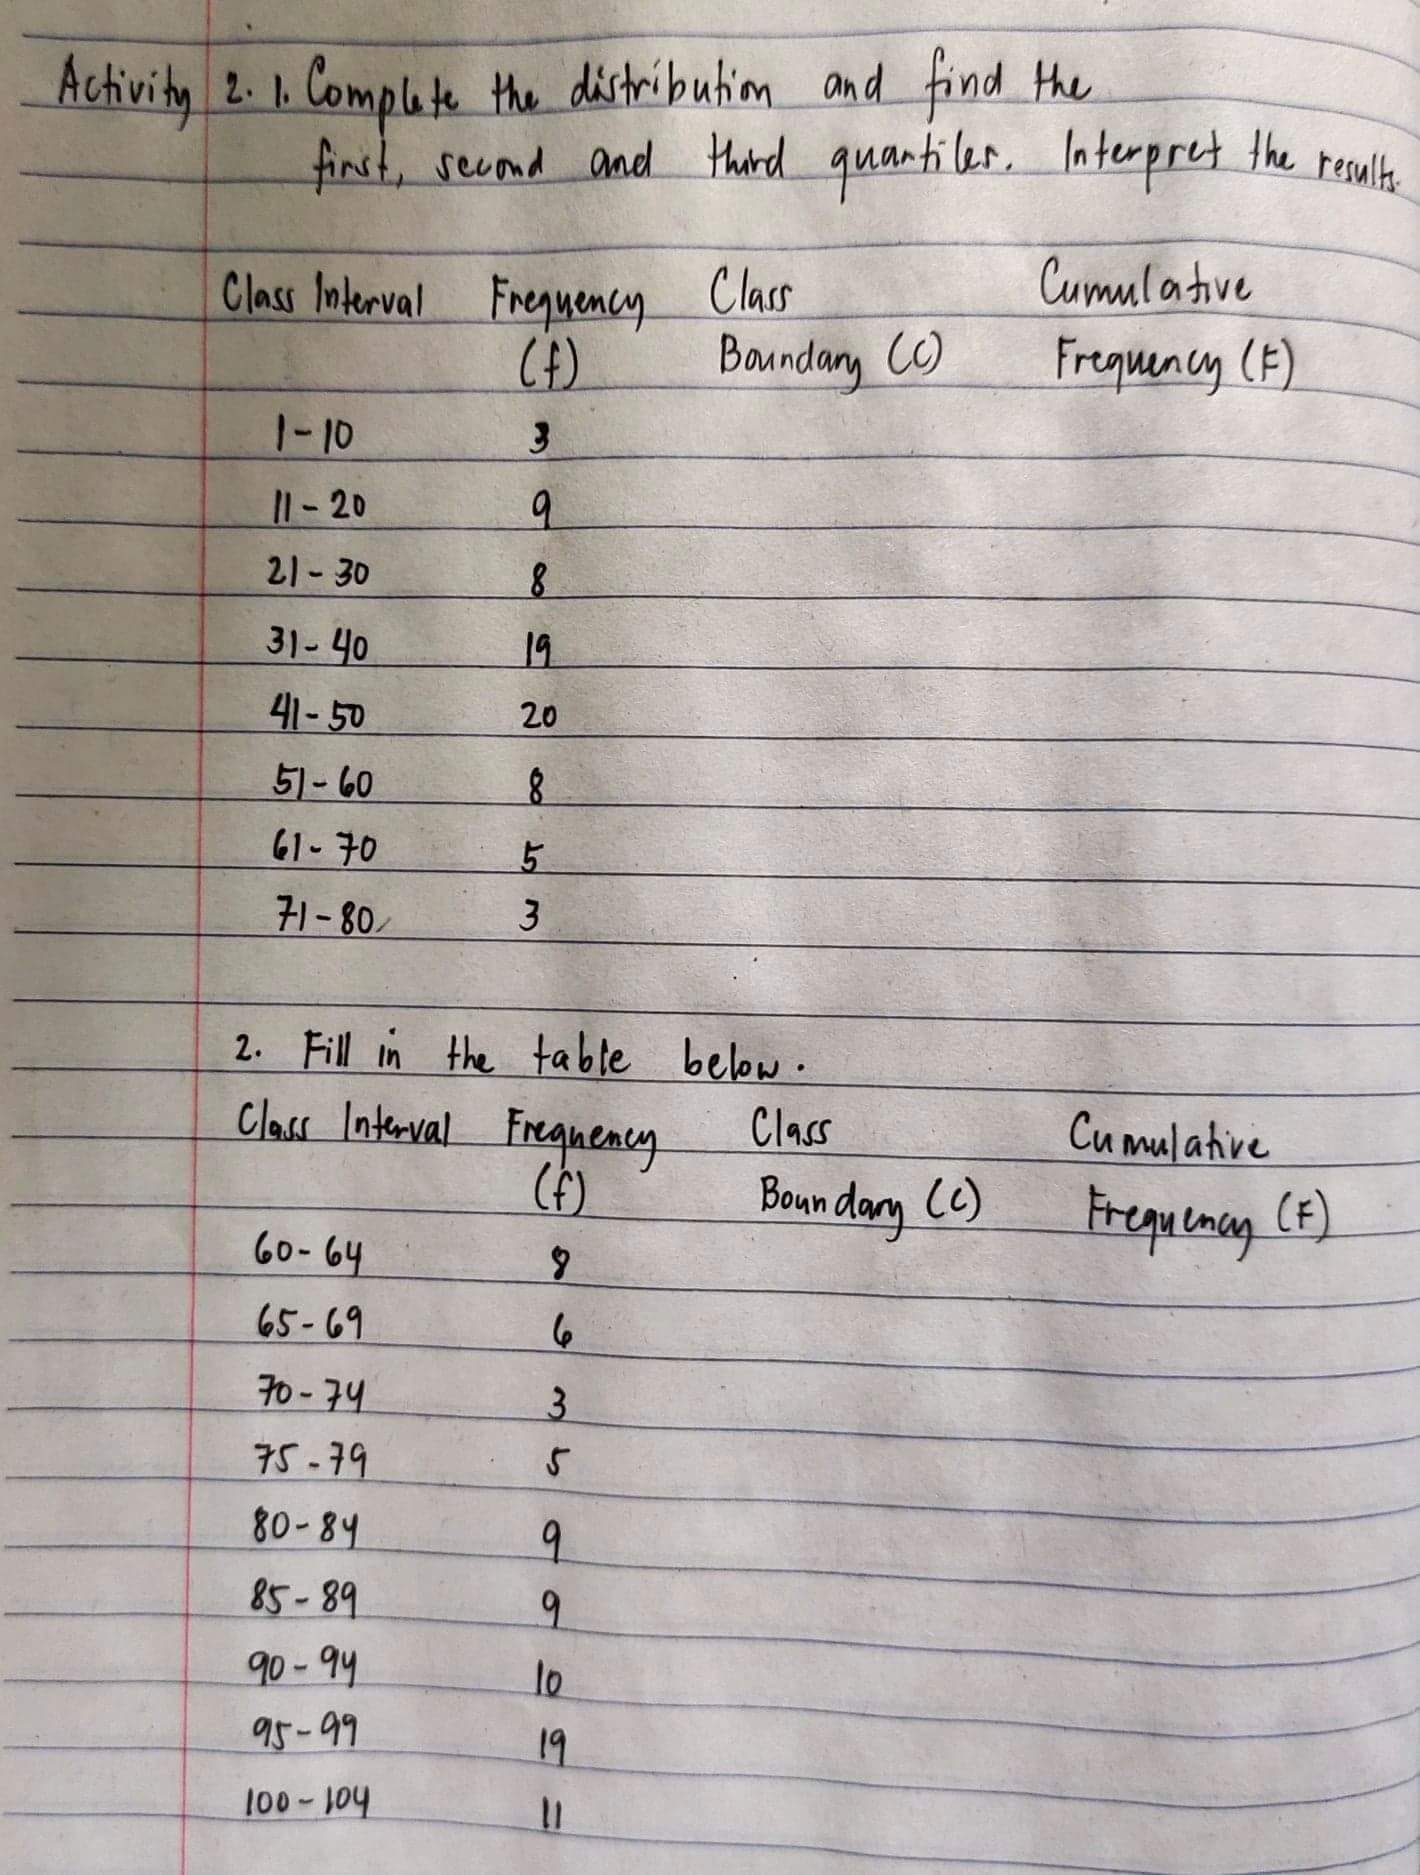 Activity 2. 1. Complete the distribution and find the
first, second and third quantiles. Interpret the results.
Class Interval Frequency Class Cumulative
(f) Boundary (C) Frequency (F)
1-10 3
11-20 9
21-30 8
31-40 19
41-50 20
51-60 8
61-70 5
71-80 3
2. Fill in the table below.
Class Interval Frequency Class Cumulative
(f) Boundary (C) Frequency (F)
60-64 8
65-69 6
70-74 3
75-79 5
80-84 9
85-89 9
90-94 10
95-99 19
100-104 11